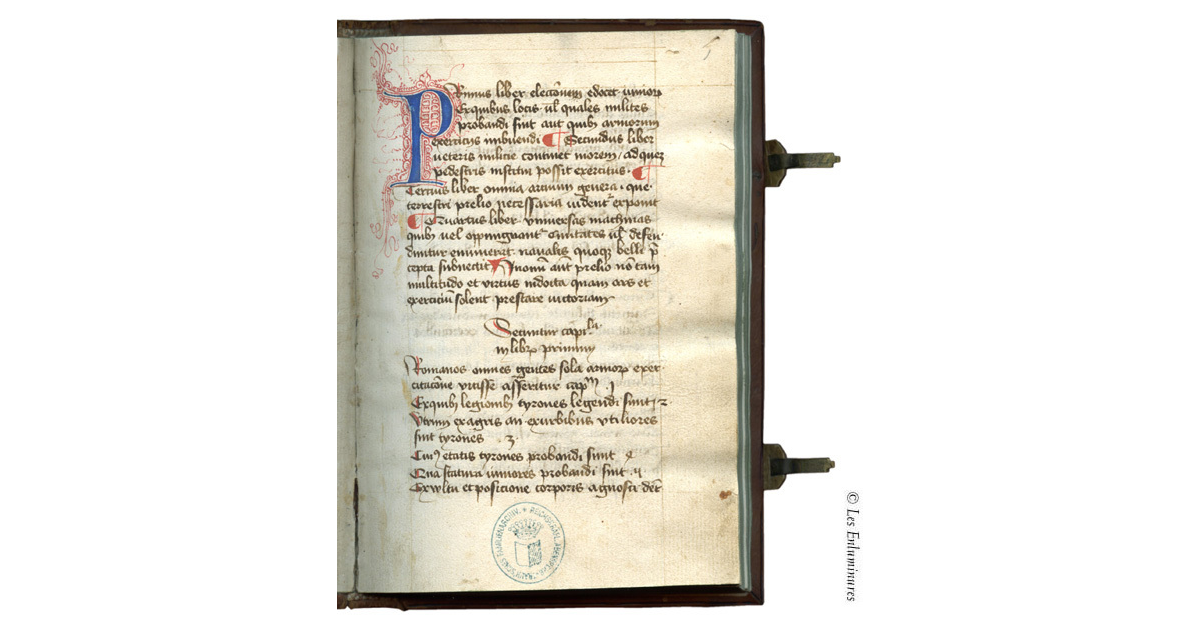 Primus liber elecc̄onem edocet iunior̄
Exquibus locis ul̄ quales milites
probandi sint aut quibꝫ armorum
exerciciis imbuendi ¶ Secundus liber
ueteris milicie continet morem / ad quē
pedestris institui possit exercitus · ¶
Tercius liber omnia arcium genera · que
terrestri prelio necessaria vident᷑ exponit
¶ Quartus liber vniuersas machinas
quibꝫ uel oppugnant᷑ Ciuitates ul̄ defen
duntur enumerat · naualis quoqꝫ belli p̄
cepta subnectit ¶ In omni aūt prelio nō tam
multitudo et virtus indocta quam ars et
exerciciū solent prestare victoriam
Secuntur capl̄a
in libꝝ primum
Romanos omnes gentes sola armoꝝ exer
citac̄one vicisse asseritur capm̄ · j
Exquibꝫ legionibꝫ tyrones legendi sunt · 2
Vtrum exagris an exurbibus vtiliores
sint tyrones · 3 ·
Cuiꝰ etatis tyrones probandi sunt 4
Qua statura iuniores probandi sint · 5
Exwltu et posicione corporis agnosci
5
© Les Enluminures